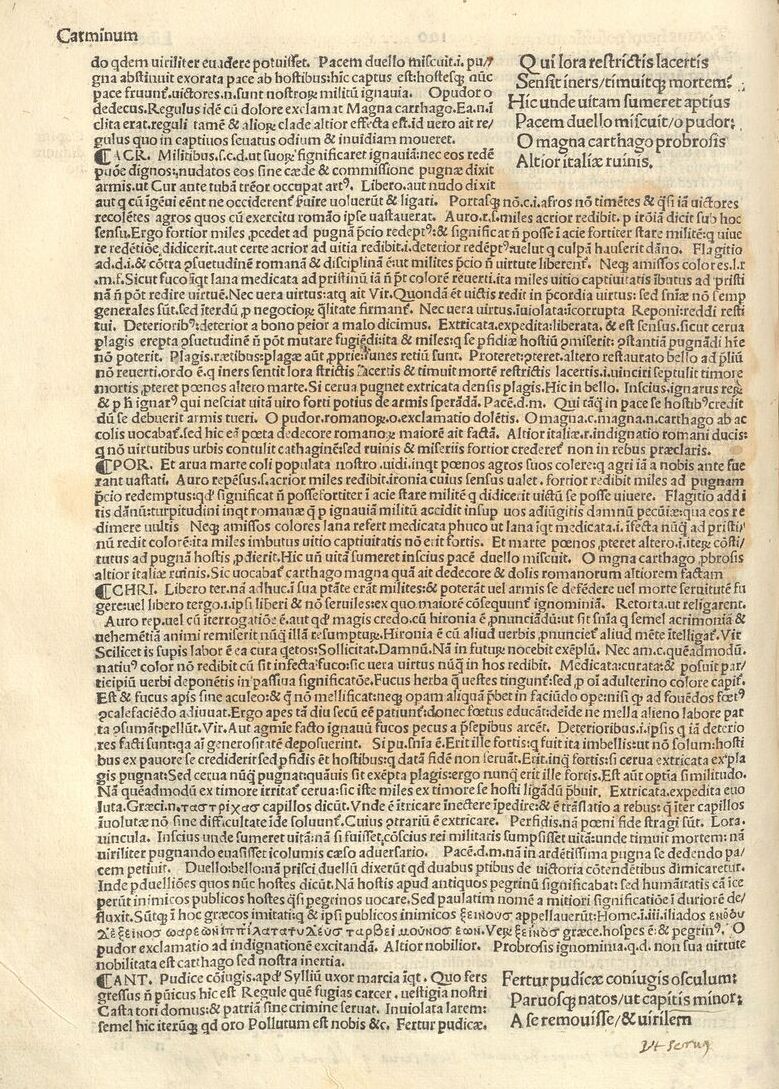 Carminum
do qdem uiriliter euadere potuisset. Pacem duello miscuit.i. pu/
gna abstinuit exorata pace ab hostibus:hic captus est:hostesq; nũc
pace fruunt̃.uictores.n.sunt nostroꝝ militũ ignauia. O pudor o
dedecus.Regulus idẽ cũ dolore exclamat Magna carthago.Ea.n.ĩ
clita erat.reguli tamẽ & alioꝝ clade altior effecta est.id uero ait re/
gulus quo in captiuos seuatus odium & inuidiam moueret.
Q ui lora restrictis lacertis
Sensit iners/timuitq; mortem:
Hic unde uitam sumeret aptius
Pacem duello miscuit/o pudor:
O magna carthago probrosis
Altior italiæ ruinis.
¶ACR. Militibus.s.c.d.ut suoꝝ significaret ignauiã:nec eos redẽ
ptiõe dignos:,nudatos eos sine cæde & commissione pugnæ dixit
armis.ut Cur ante tubã tr̃eor occupat artꝰ. Libero.aut nudo dixit
aut q cũ ĩgẽui eẽnt ne occiderent̃ ẜuire uoluerũt & ligari. Portasq; nõ.c.i.afros nõ timẽtes & q̃si iã uictores
recolẽtes agros quos cũ exercitu romão ipse uastauerat. Auro.r.s.miles acrior redibit. p irõiã dicit sub hoc
sensu.Ergo fortior miles ꝓcedet ad pugnã p̃cio redeptꝰ:& significat ñ posse ĩ acie fortiter stare militẽ:q uiue
re redẽtiõe didicerit.aut certe acrior ad uitia redibit.i.deterior redẽptꝰ:uelut q culpã hauserit dãno. Flagitio
ad.d.i.& cõtra ꝯsuetudinẽ romanã & disciplinã ẽ:ut milites p̃cio ñ uirtute liberent̃. Neq; amissos colores.l.r
.m.f.Sicut fuco ĩqt lana medicata ad pristinũ iã ñ p̃t colorẽ reuerti.ita miles uitio captiuitatis ĩbutus ad pristi
nã ñ põt redire uirtuẽ.Nec uera uirtus:atq ait Vir.Quondã ẽt uictis redit in p̃cordia uirtus:sed sniæ nõ semp
generales sũt.sed ĩterdũ p negocioꝝ q̃litate firmant̃. Nec uera uirtus.ĩuiolata:ĩcorrupta Reponi:reddi resti
tui. Deterioribꝰ:deterior a bono peior a malo dicimus. Extricata.expedita:liberata. & est sensus.sicut cerua
plagis erepta ꝯsuetudinẽ ñ põt mutare fugiẽdi:ita & miles:q se ꝑfidiæ hostiũ ꝓmiserit: ꝯstantiã pugnãdi hr̃e
nõ poterit. Plagis.rætibus:plagæ aũt ꝓprie:funes retiũ sunt. Proteret:ꝓteret.altero restaurato bello ad p̃liũ
nõ reuerti.ordo ẽ.q iners sentit lora strictis lacertis & timuit mortẽ restrictis lacertis.i.uinciri septusit timore
mortis ꝓteret pœnos altero marte.Si cerua pugnet extricata densis plagis.Hic in bello. Inscius.ignarus reꝝ
& p̃ h̃ ignarꝰ qui nesciat uitã uiro forti potius de armis sperãdã. Pacẽ.d.m. Qui tãq̃ in pace se hostibꝰcredit
dũ se debuerit armis tueri. O pudor.romanoꝝ.o.exclamatio dolẽtis. O magna.c.magna.n.carthago ab ac
colis uocabat̃.sed hic eã pœta dedecore romanoꝝ maiorẽ ait factã. Altior italiæ.r.indignatio romani ducis:
q nõ uirtutibus urbis contulit cathaginẽ:sed ruinis & miseriis fortior crederet̃ non in rebus præclaris.
¶POR. Et arua marte coli populata nostro .uidi.inqt pœnos agros suos colere:q agri iã a nobis ante fue
rant uastati. Auro repẽsus.s.acrior miles redibit.ironia cuius sensus ualet. fortior redibit miles ad pugnam
p̃cio redemptus:qd̃ significat ñ posse fortiter ĩ acie stare militẽ q didicerit uictũ se posse uiuere. Flagitio addi
tis dãnũ:turpitudini inqt romanæ q̃ p ignauiã militũ accidit insup uos adiũgitis damnũ pecũiæ:qua eos re
dimere uultis Neq; amissos colores lana refert medicata phuco ut lana ĩqt medicata.i.ĩfecta nũq̃ ad pristi/
nũ redit colorẽ:ita miles imbutus uitio captiuitatis nõ erit fortis. Et marte pœnos ꝓteret altero.i.iteꝝ cõsti/
tutus ad pugnã hostis ꝓdierit.Hic uñ uitã sumeret inscius pacẽ duello miscuit. O mgna carthago ꝓbrosis
altior italiæ ruinis.Sic uocabat̃ carthago magna quã ait dedecore & dolis romanorum altiorem factam
¶CHRI. Libero ter.nã adhuc.ĩ sua ptãte erãt milites:& poterãt uel armis se defẽdere uel morte seruitutẽ fu
gere:uel libero tergo.i.ipsi liberi & nõ seruiles:ex quo maiorẽ cõsequunt̃ ignominiã. Retorta.ut religarent.
Auro rep.uel cũ iterrogatiõe ẽ.aut qd̃ magis credo.cũ hironia ẽ ꝓnunciãdũ:ut sit sñia q semel acrimoniã &
uehemẽtiã animi remiserit nũq̃ illã resumpturꝝ.Hironia ẽ cũ aliud uerbis ꝓnunciet̃ aliud mẽte ĩtelligat̃. Vir
Scilicet is supis labor ẽ ea cura q̃etos:Sollicitat.Damnũ.Nã in futurꝝ nocebit exẽplũ. Nec am.c.quẽadmodũ.
natiuꝰ color nõ redibit cũ sit infecta fuco:sic uera uirtus nũq̃ in hos redibit. Medicata:curata:& posuit par/
ticipiũ uerbi deponẽtis in passiua significatiõe.Fucus herba q̃ uestes tingunt̃:sed ꝓ oĩ adulterino colore capit̃.
Est & fucus apis sine aculeo:& q̃ nõ mellificat:neq; opam aliquã p̃bet in faciũdo ope:nisi qp ad fouẽdos fœtꝰ
ꝯcalefaciẽdo adiuuat.Ergo apes tã diu secũ eẽ patiunt̃:donec fœtus educãt:deĩde ne mella alieno labore par
ta ꝯsumãt:pellũt.Vir.Aut agmĩe facto ignauũ fucos pecus a p̃sepibus arcẽt. Deterioribus.i.ipsis q iã deterio
res facti sunt:qa aĩ generositatẽ deposuerint. Si pu.snĩa ẽ.Erit ille fortis:q fuit ita imbellis:ut nõ solum:hosti
bus ex pauore se crediderit sed pfidis ẽt hostibus:q datã fidẽ non seruãt.Erit.inq̃ fortis:si cerua extricata ex pla
gis pugnat:Sed cerua nũq̃ pugnat:quãuis sit exẽpta plagis:ergo nunq̃ erit ille fortis.Est aũt optĩa similitudo.
Nã quẽadmodũ ex timore irritat̃ cerua:sic iste miles ex timore se hosti ligãdũ p̃buit. Extricata.expedita euo
luta.Græci.n.τας τρίχας capillos dicũt.Vnde ẽ ĩtricare ĩnectere ĩpedire:& ẽ trãslatio a rebus:q̃ ĩter capillos
ĩuolutæ nõ sine difficultate ĩde soluunt̃.Cuius ꝯtrariũ ẽ extricare. Perfidis.nã pœni fide strãgi sũt. Lora.
uincula. Inscius unde sumeret uitã:nã si fuisset,cõscius rei militaris sumpsisset uitã:unde timuit mortem: nã
uiriliter pugnando euasisset icolumis cæso aduersario. Pacẽ.d.m.nã in ardẽtissima pugna se dedendo pa/
cem petiuit. Duello:bello:nã prisci duellũ dixerũt qd duabus ptibus de uictoria cõtendẽtibus dimicaretur.
Inde pduelliões quos nũc hostes dicũt.Nã hostis apud antiquos pegrinũ significabat: sed humãitatis cã ĩce
perũt inimicos publicos hostes q̃si pegrinos uocare.Sed paulatim nomẽ a mitiori significatiõe ĩ duriorẽ de/
fluxit.Sũtq; ĩ hoc græcos imitati:q & ipsi publicos inimicos ξείνους appellauerũt:Home.i.iii.iliados
μοῦνος ἐων.Veꝝ ξεῖνος græce.hospes ẽ:& pegrinꝰ. O
pudor exclamatio ad indignationẽ excitandã. Altior nobilior. Probrosis ignominia.q.d. non sua uirtute
nobilitata est carthago sed nostra inertia.
¶ANT. Pudice cõiugis.apd̃ Sylliũ uxor marcia ĩqt. Quo fers
gressus ñ p̃uicus hic est Regule quẽ fugias carcer. uestigia nostri
Casta tori domus:& patriã sine crimine seruat. Inuiolata larem:
semel hic iterũq; qd oro Pollutum est nobis &c. Fertur pudicæ.
Fertur pudicæ coniugis osculum:
Paruosq; natos/ut capitis minor:
A se remouisse/& uirilem
Vt seruq